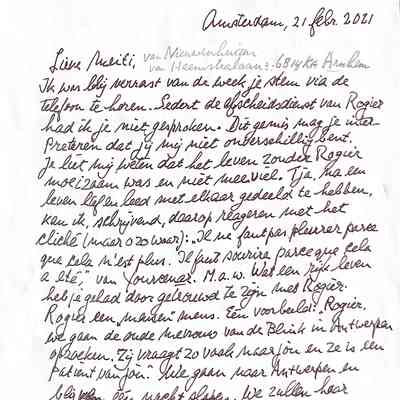 Amsterdam, 21 febr. 2021
Lieve Meiti, van Nieuwenhuizen
van Heemstralaan : 6814 KK Arnhem
Ik was blij verrast van de week je stem via de
telefoon te horen. Sedert de afscheidsdienst van Rogier
had ik je niet gesproken. Dit gemis mag je inter-
preteren dat jij mij niet onverschillig bent.
Je liet mij weten dat het leven zonder Rogier
moeizaam was en niet meeviel. Tja, na een
leven lief en leed met elkaar gedeeld te hebben,
kan ik, schrijvend, daarop reageren met het
cliché (maar o zo waar): "Il ne faut pas pleurer parce
que cela n'est plus. Il faut sourire parce que cela
a été," van Yourcenar. M.a.w. Wat een rijk leven
heb je gehad door getrouwd te zijn met Rogier.
Rogier een "mensen" mens. Eén voorbeeld: "Rogier,
we gaan de oude mevrouw van de Blink in Antwerpen
opzoeken. Zij vraagt zo vaak naar jou en ze is een
patient van jou." We gaan naar Antwerpen en
blijven één nacht slapen. We zullen haar